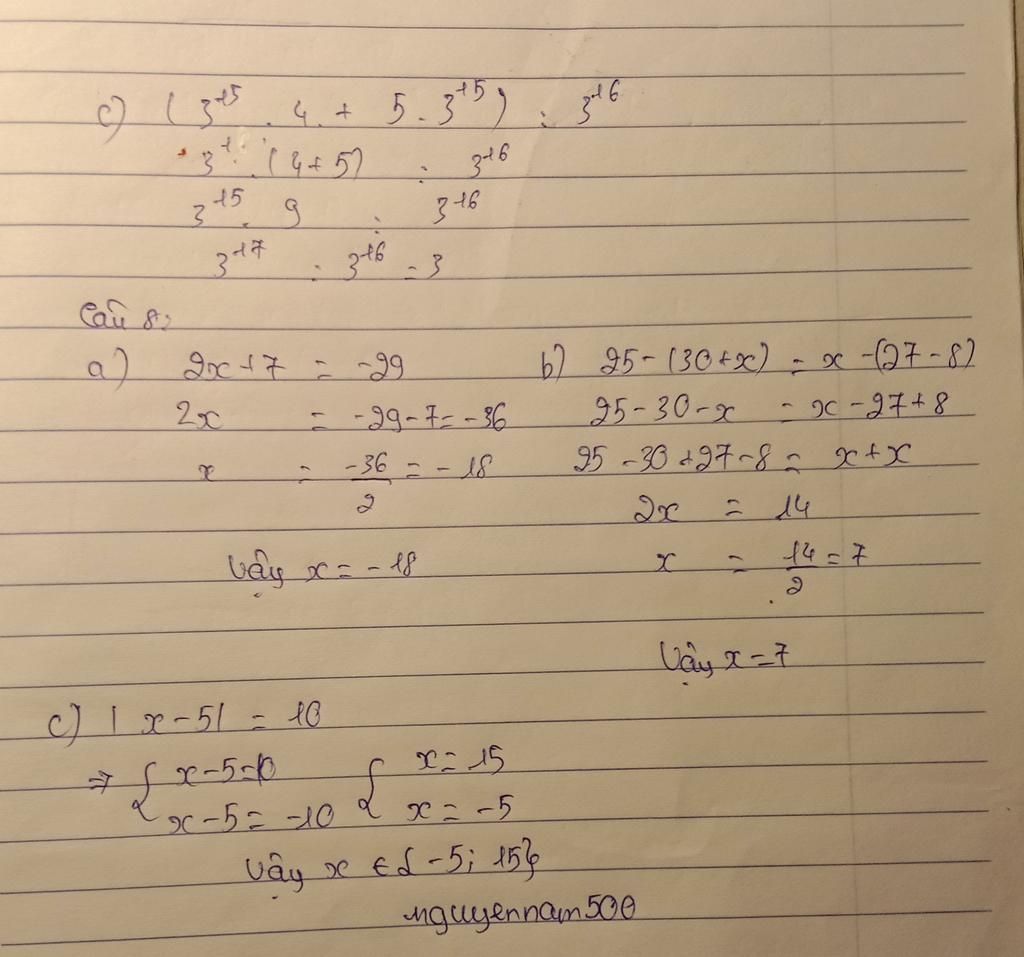 c) (3^15 . 4 + 5 . 3^15) : 3^16
3^1 . (4+5) : 3^16
3^15 . 9 : 3^16
3^17 : 3^16 = 3
Câu 8:
a) 2x+7 = -29
2x = -29-7 = -36
x = -36/2 = -18
Vậy x = -18
b) 25-(30+x) = x-(27-8)
25-30-x = x-27+8
25-30+27-8 = x+x
2x = 14
x = 14/2 = 7
Vậy x=7
c) |x-5| = 10
⇒ { x-5=10 { x=15
x-5=-10 x=-5
Vậy x ∈ {-5; 15}
nguyennam500